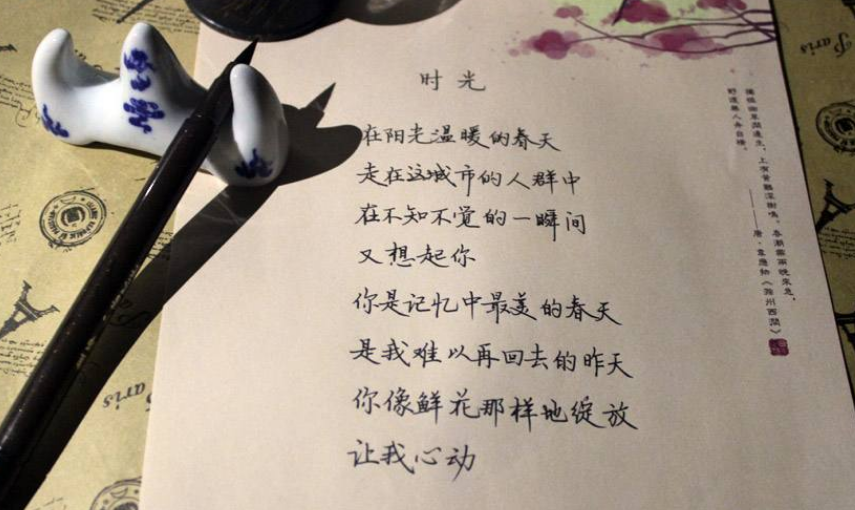 时光
在阳光温暖的春天
走在这城市的人群中
在不知不觉的一瞬间
又想起你
你是记忆中最美的春天
是我难以再回去的昨天
你像鲜花那样地绽放
让我心动
獨憐幽草澗邊生，上有黃鸝深樹鳴。春潮帶雨晚來急，
野渡無人舟自橫。
——唐·韋應物《滁州西澗》
Paris
Paris